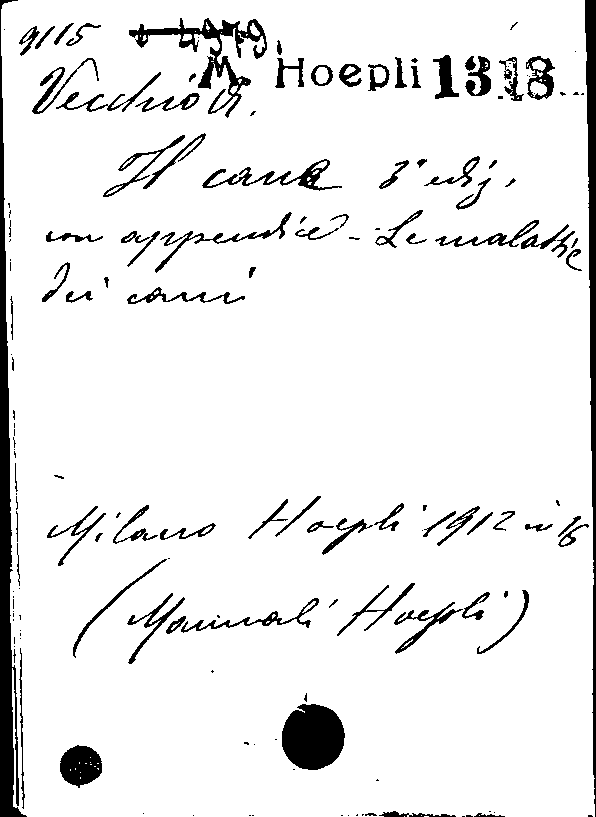 9115
M. Hoepli 1318
Vecchio A.
Il cane 3ª ediz.
con appendice - Le malattie
dei cani
Milano Hoepli 1912 in 16
(Manuali Hoepli)